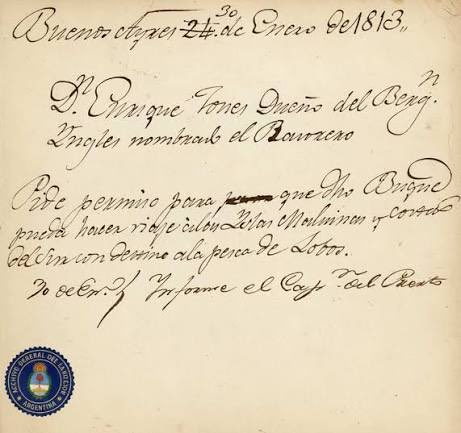 Buenos Ayres 24. 30 de Enero de 1813,,
Dn. Enrique Jones Dueño del Bergn.
Yngles nombrado el
Pide permiso para que dho Buque
pueda hacer viaje a las Yslas Malvinas y Costas
del Sur con destino a la pesca de Lobos.
30 de Enº. Informe el Capn. del Puerto
ARCHIVO GENERAL DE LA NACION
ARGENTINA